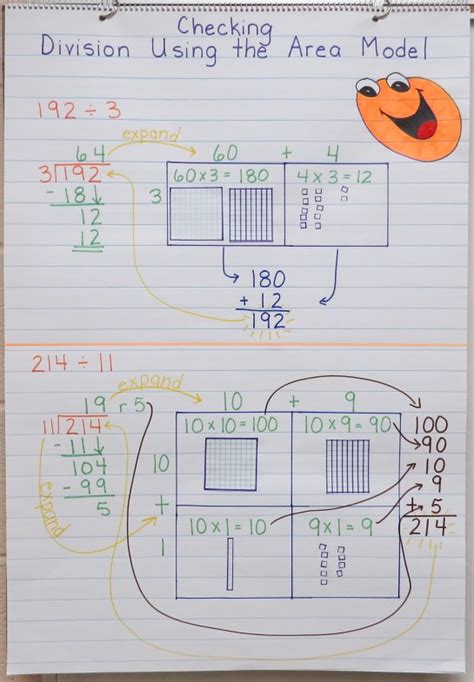 Checking
Division Using the Area Model
192 ÷ 3
expand
64
3 192
- 18
12
12
60 + 4
3
60 x 3 = 180
4 x 3 = 12
180
+ 12
192
214 ÷ 11
expand
19 r 5
11 214
- 11
104
- 99
5
expand
10 + 9
10
+
1
10 x 10 = 100
10 x 9 = 90
10 x 1 = 10
9 x 1 = 9
100
90
10
9
+ 5
214